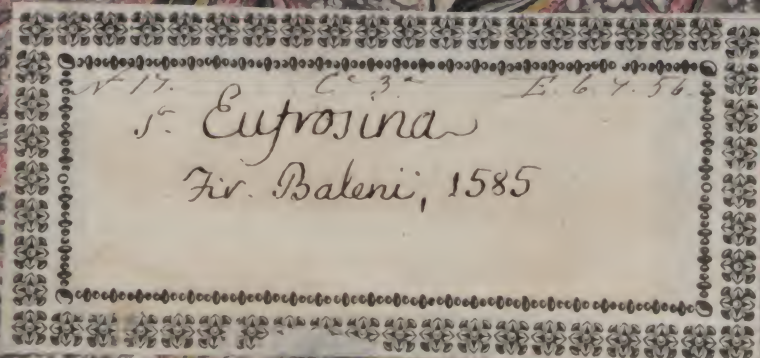 N 17. Ca 3.a E. 6. 7. 56.
S.a Eufrosina
Fir. Baleni, 1585